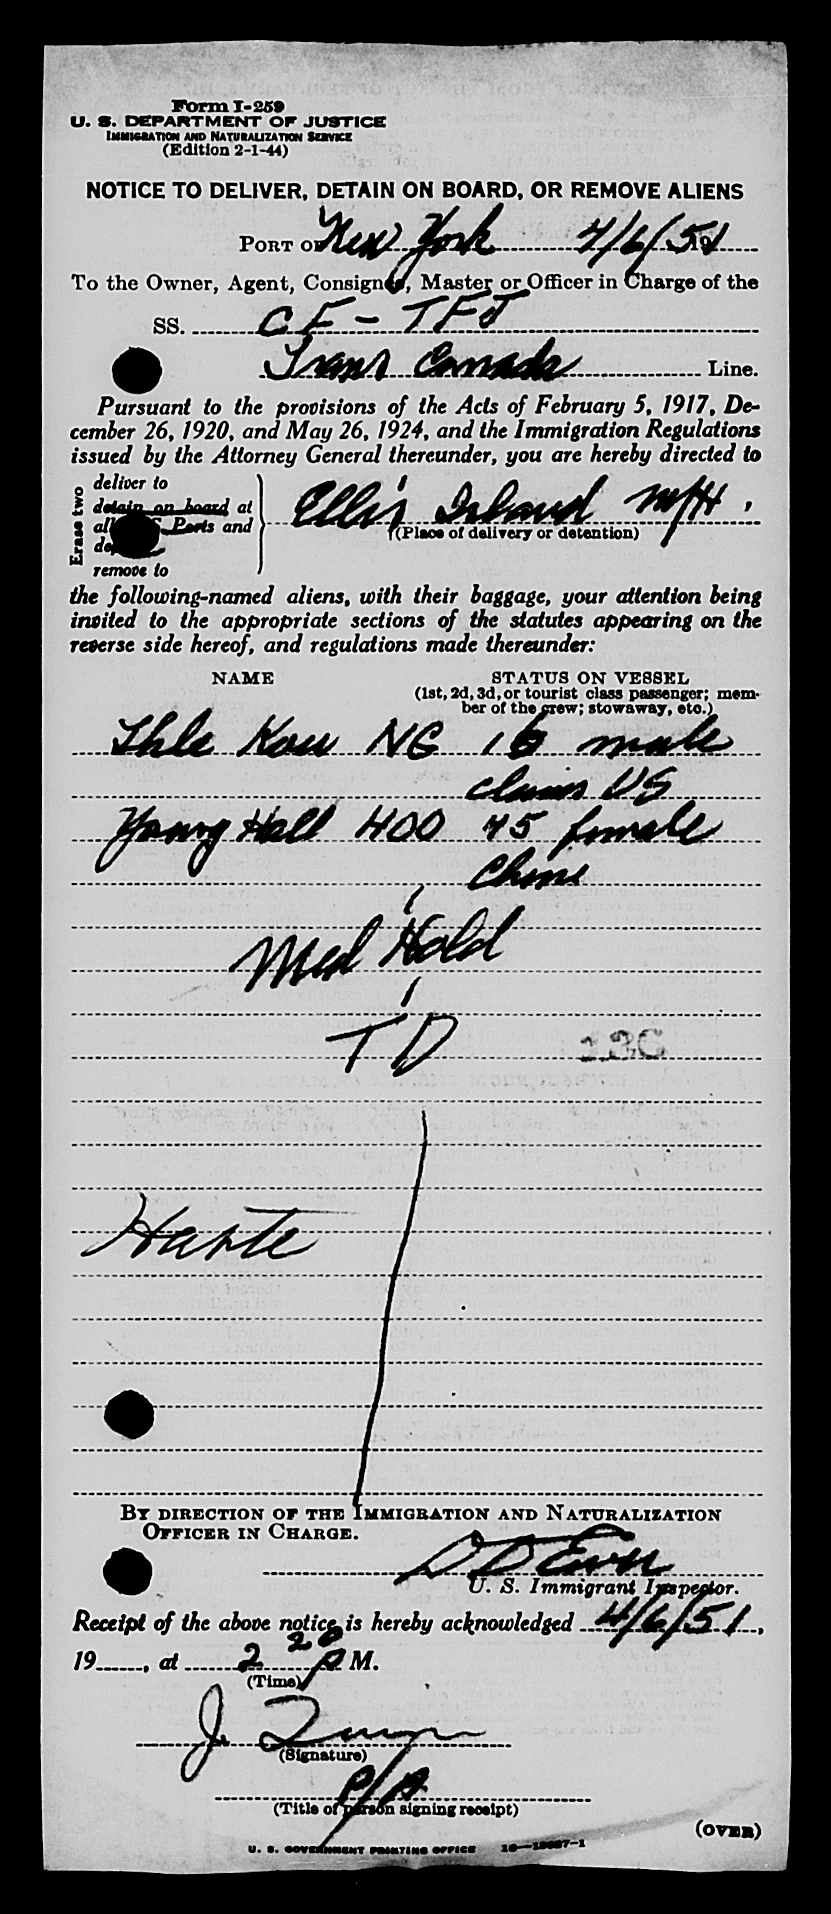 Form I-259
U. S. DEPARTMENT OF JUSTICE
IMMIGRATION AND NATURALIZATION SERVICE
(Edition 2-1-44)
NOTICE TO DELIVER, DETAIN ON BOARD, OR REMOVE ALIENS
PORT OF New York 4/6/51 19
To the Owner, Agent, Consignee, Master or Officer in Charge of the
SS. CF-TFJ
Trans Canada Line.
Pursuant to the provisions of the Acts of February 5, 1917, De-
cember 26, 1920, and May 26, 1924, and the Immigration Regulations
issued by the Attorney General thereunder, you are hereby directed to
Erase two
deliver to
detain on board at
all Ports and
remove to
Ellis Island
(Place of delivery or detention)
the following-named aliens, with their baggage, your attention being
invited to the appropriate sections of the statutes appearing on the
reverse side hereof, and regulations made thereunder:
NAME STATUS ON VESSEL
(1st, 2d, 3d, or tourist class passenger; mem-
ber of the crew; stowaway, etc.)
Kow NG 16 male
claims US
Young Hall HOO 45 female
Chine
Med Hold
TD
By DIRECTION OF THE IMMIGRATION AND NATURALIZATION
OFFICER IN CHARGE.
U. S. Immigrant Inspector.
Receipt of the above notice is hereby acknowledged 4/6/51,
19, at 2 20 P M.
(Time)
J. Quinn
(Signature)
P/A
(Title of person signing receipt)
(OVER)
U. S. GOVERNMENT PRINTING OFFICE